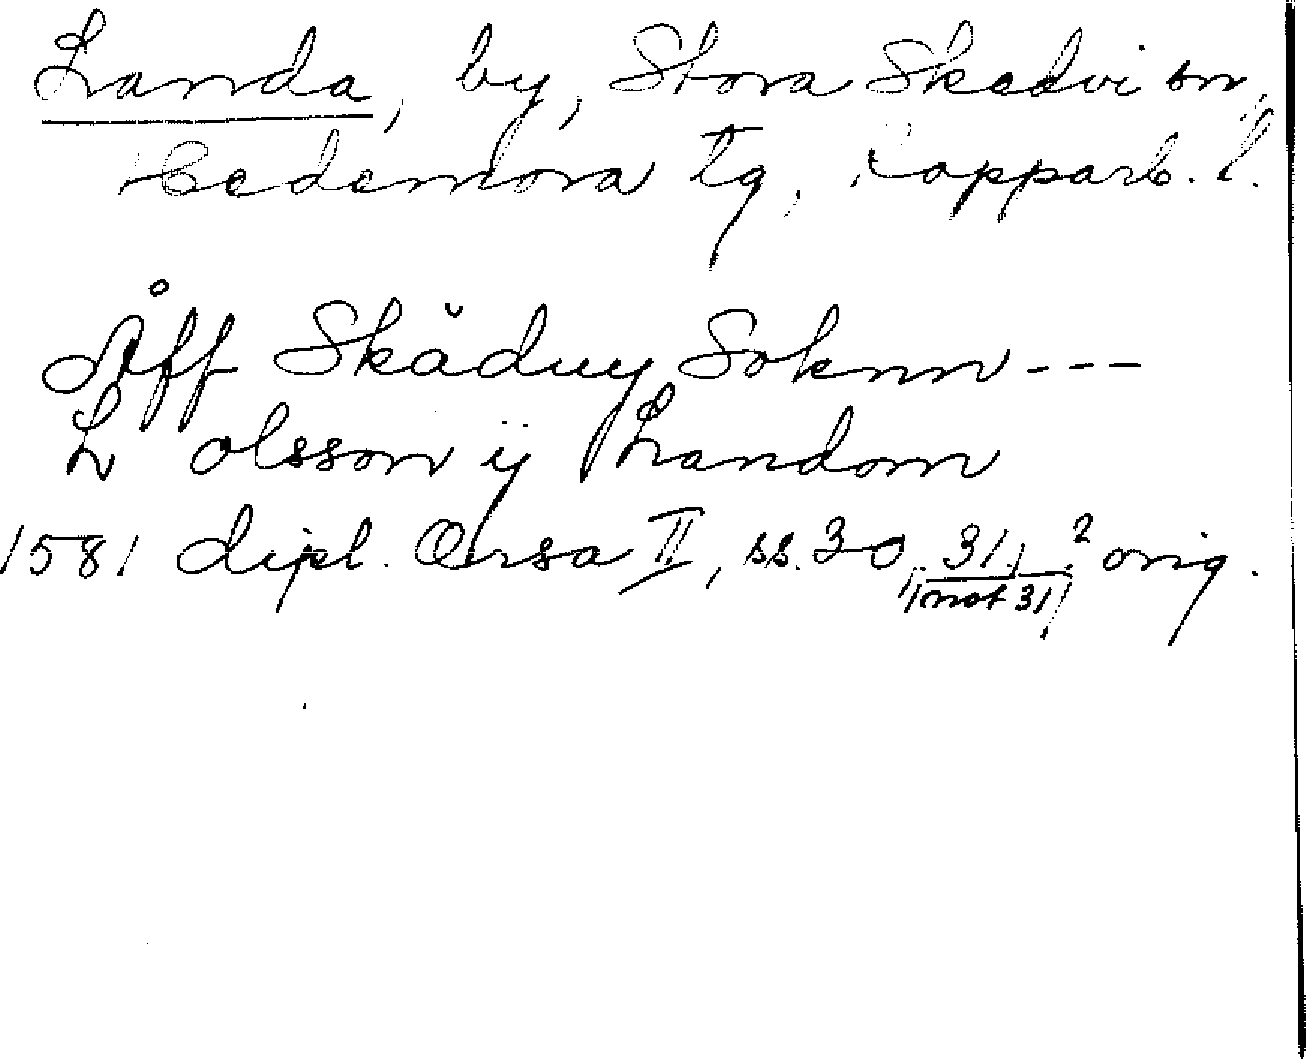 Landa, by, Stora Skedvi sn,
Hedemora tg, Kopparb. l.
Åff Skäduy Soknn ---
L olsson ÿ Landom
1581 dipl. Orsa II, ss. 30, 31, 2 orig.
(not 31)